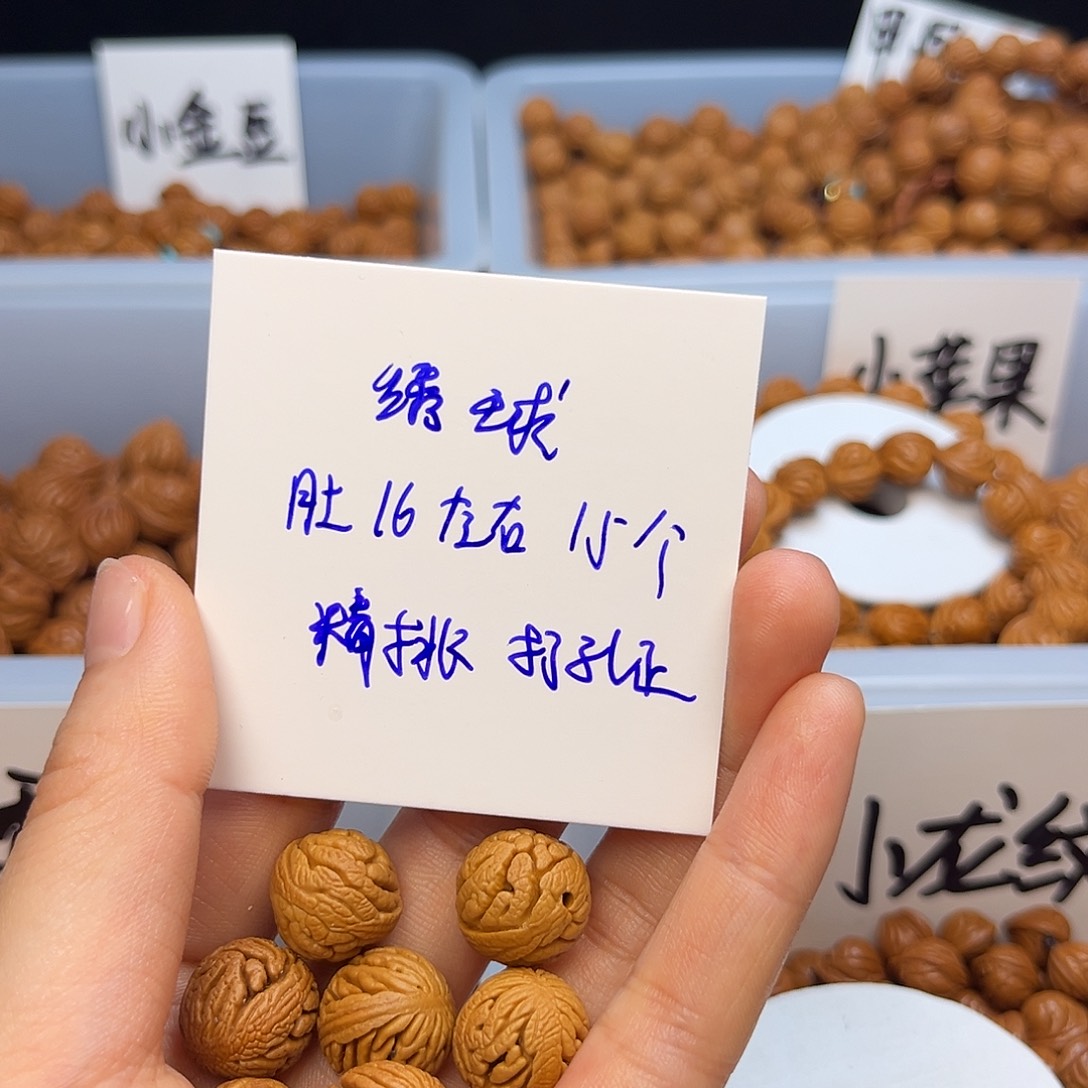 小金豆
绣球
肚16左右 15个
精排 打孔正
小苹果
小龙纹